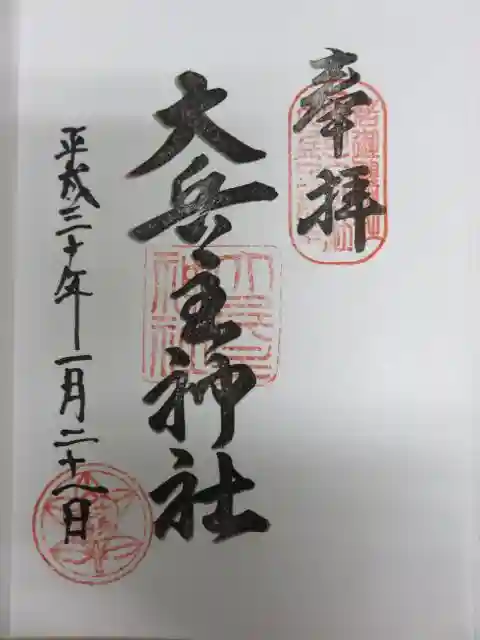 奉拝
大兵主神社
平成三十年一月二十八日